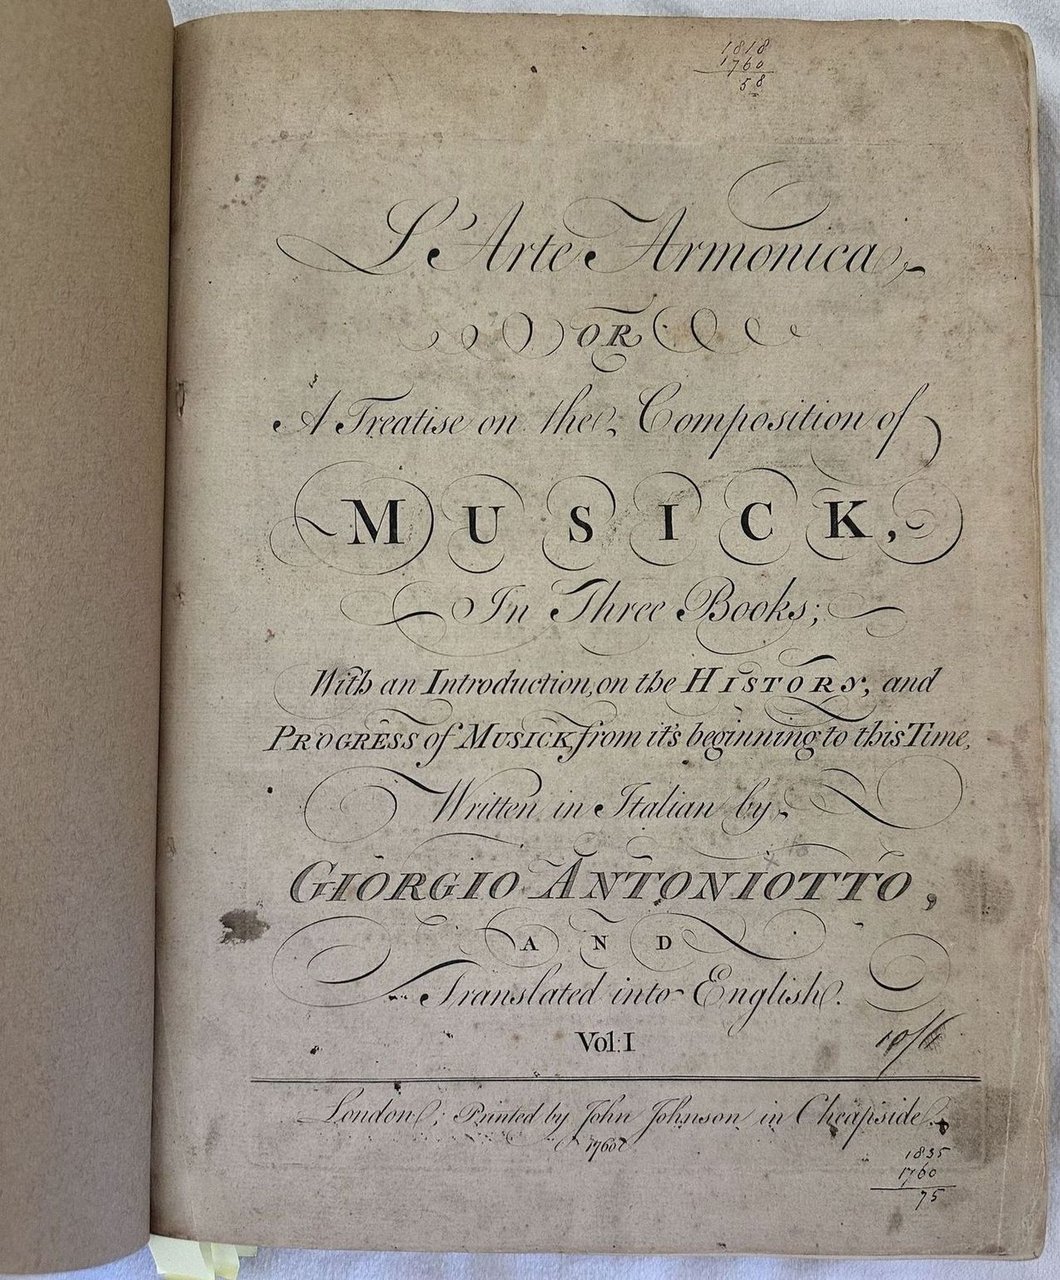 1818
1760
58
L'Arte Armonica
OR
A Treatise on the Composition of
MUSICK,
In Three Books;
With an Introduction, on the HISTORY, and
PROGRESS of MUSICK, from it's beginning to this Time,
Written in Italian by
GIORGIO ANTONIOTTO,
AND
Translated into English.
Vol: I
10/6
London; Printed by John Johnson in Cheapside.
1760
1835
1760
75